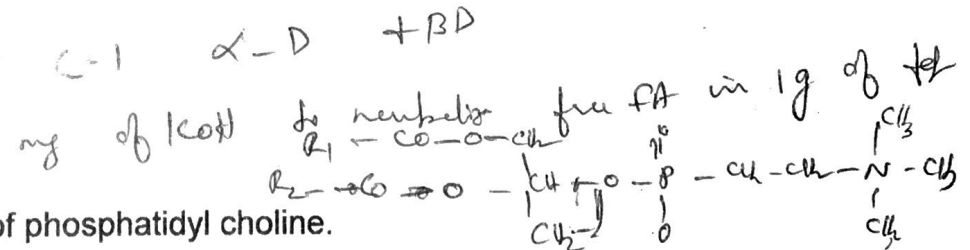 C-1 α-D +βD
mg of KOH to neutralize free FA in 1g of fat
R₁ - CO-O-CH₂
R₂ - CO - O - CH - O - P - CH₂ - CH₂ - N - CH₃
O
CH₃
CH₂ O CH₃
of phosphatidyl choline.